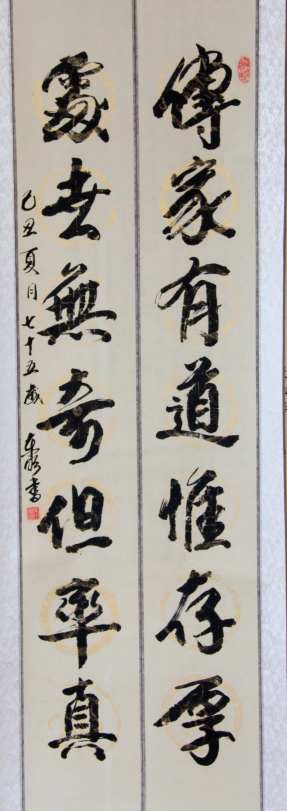 傳家有道惟存厚
處世無奇但率真
己丑夏月七十五歲
書